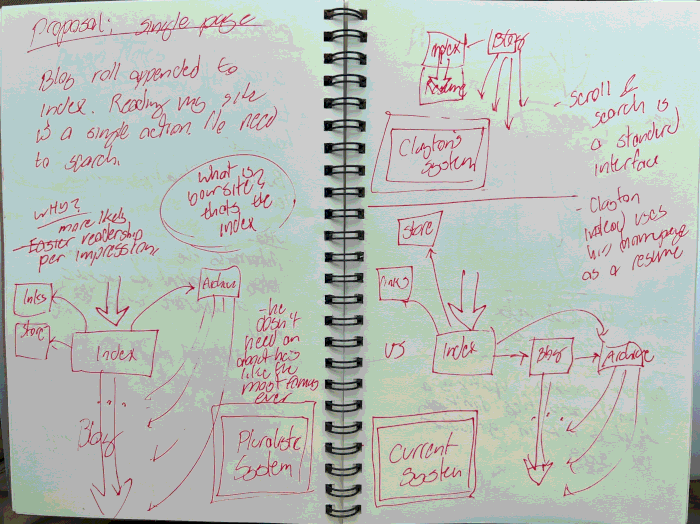 Proposal: single page
Blog roll appended to
index. Reading my site
is a single action. No need
to search.
what is
your site?
thats the
index
WHY?
more likely
Easter readership
per impression
links
store
Index
Archive
Blog
- he
doesn't
need an
about
like the
most famous
ever
Pluralistic
System
Index
Blog
Resume
Clayton's
System
- Scroll &
search is
a standard
interface
- Clayton
instead uses
his homepage
as a resume
store
links
vs
Index
Blog
Archive
Current
System